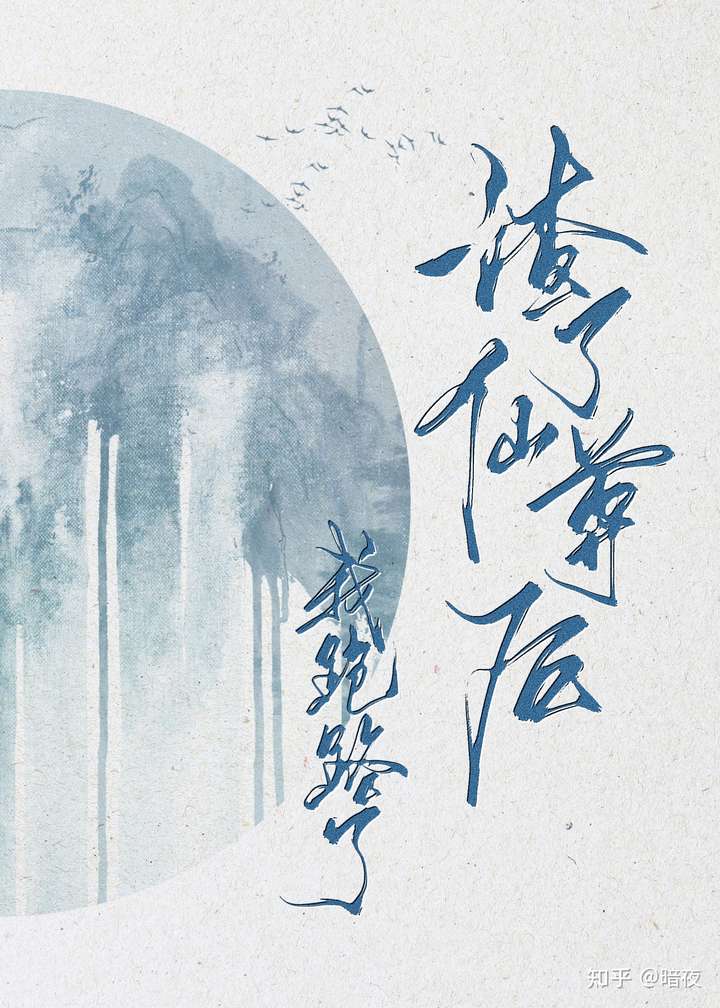 渣了仙尊后
我跑路了
知乎 @暗夜